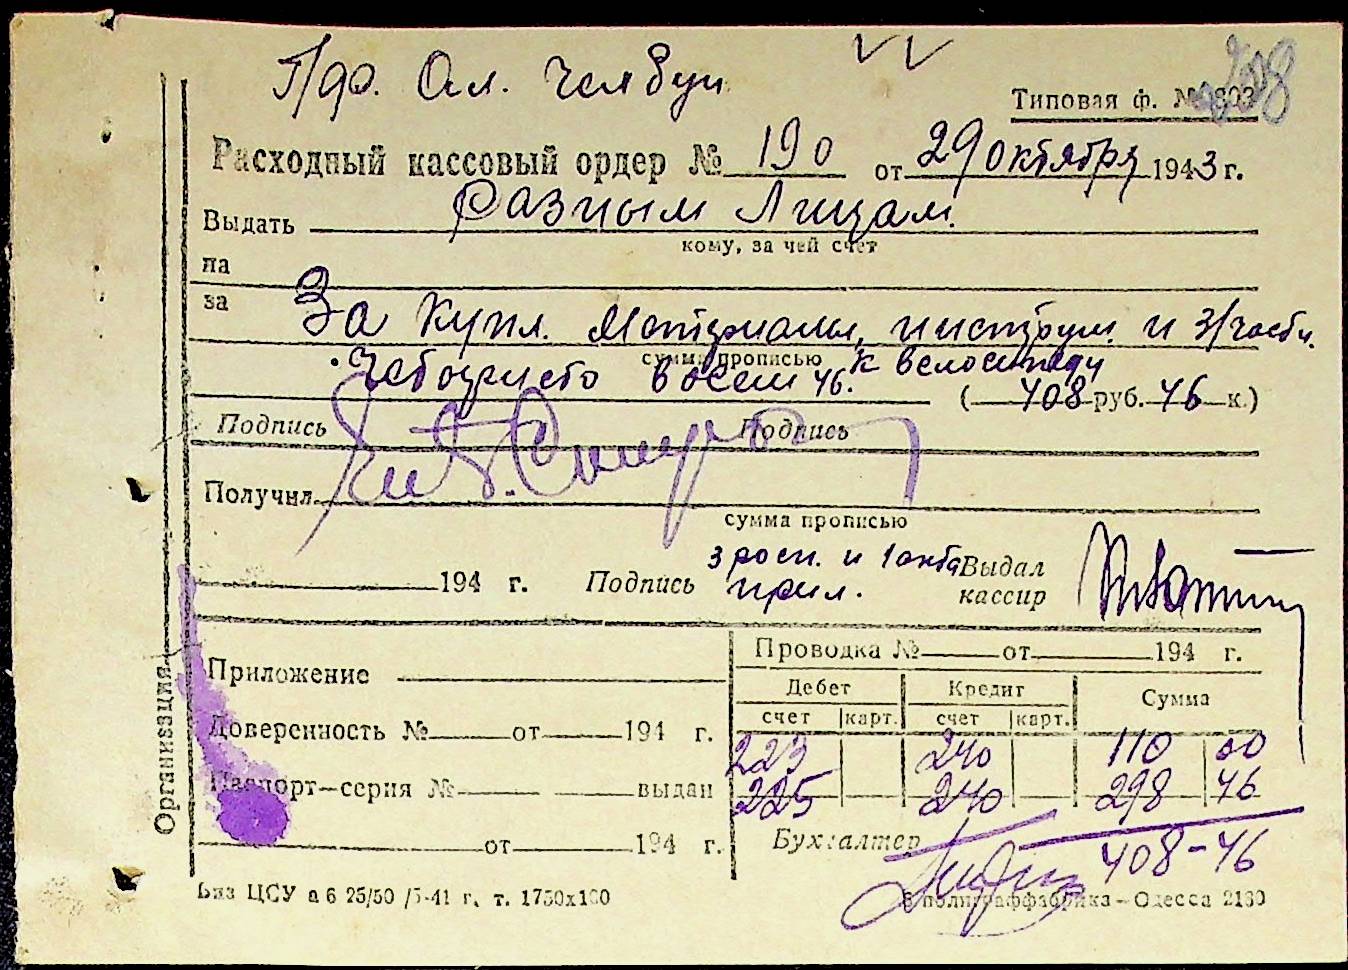 П/фо. Ал. Челбуи
Типовая ф. №
Расходный кассовый ордер № 190 от 29 октября 1943 г.
Выдать Разным Лицам.
кому, за чей счет
на
за За купл. Материалы, инструм. и з/части.
сумма прописью к велосипеду
Четыреста восем 46. (408 руб. 46 к.)
Подпись Подпись
Получил
сумма прописью
3 росп. и 1 акта
194 г. Подпись прил. Выдал кассир
Приложение
Доверенность № от 194 г.
Паспорт—серия № выдан
от 194 г.
Проводка № от 194 г.
Дебет Кредит Сумма
счет карт. счет карт.
223 240 110 00
225 240 298 46
Бухгалтер 408-46
Биз ЦСУ а 6 25/50 /5-41 г. т. 1750х100
полиграффабрика—Одесса 2130
Организация